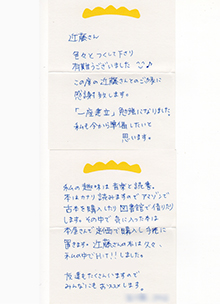 近藤さん
色々とつくして下さり
有難うございました
この度の近藤さんとのご縁に
感謝を致します。
「一座建立」勉強になりました
私も今から準備したいと
思います。
私の趣味は音楽と読書。
本はカナリ読みますのでアマゾンで
古本を購入したり図書館で借りたり
します。その中で気に入った本は
本屋さんで定価で購入し手元に
置きます。近藤さんの本は久々、
私の中でHit!!しました。
友達もたくさんいますので
みんなにも